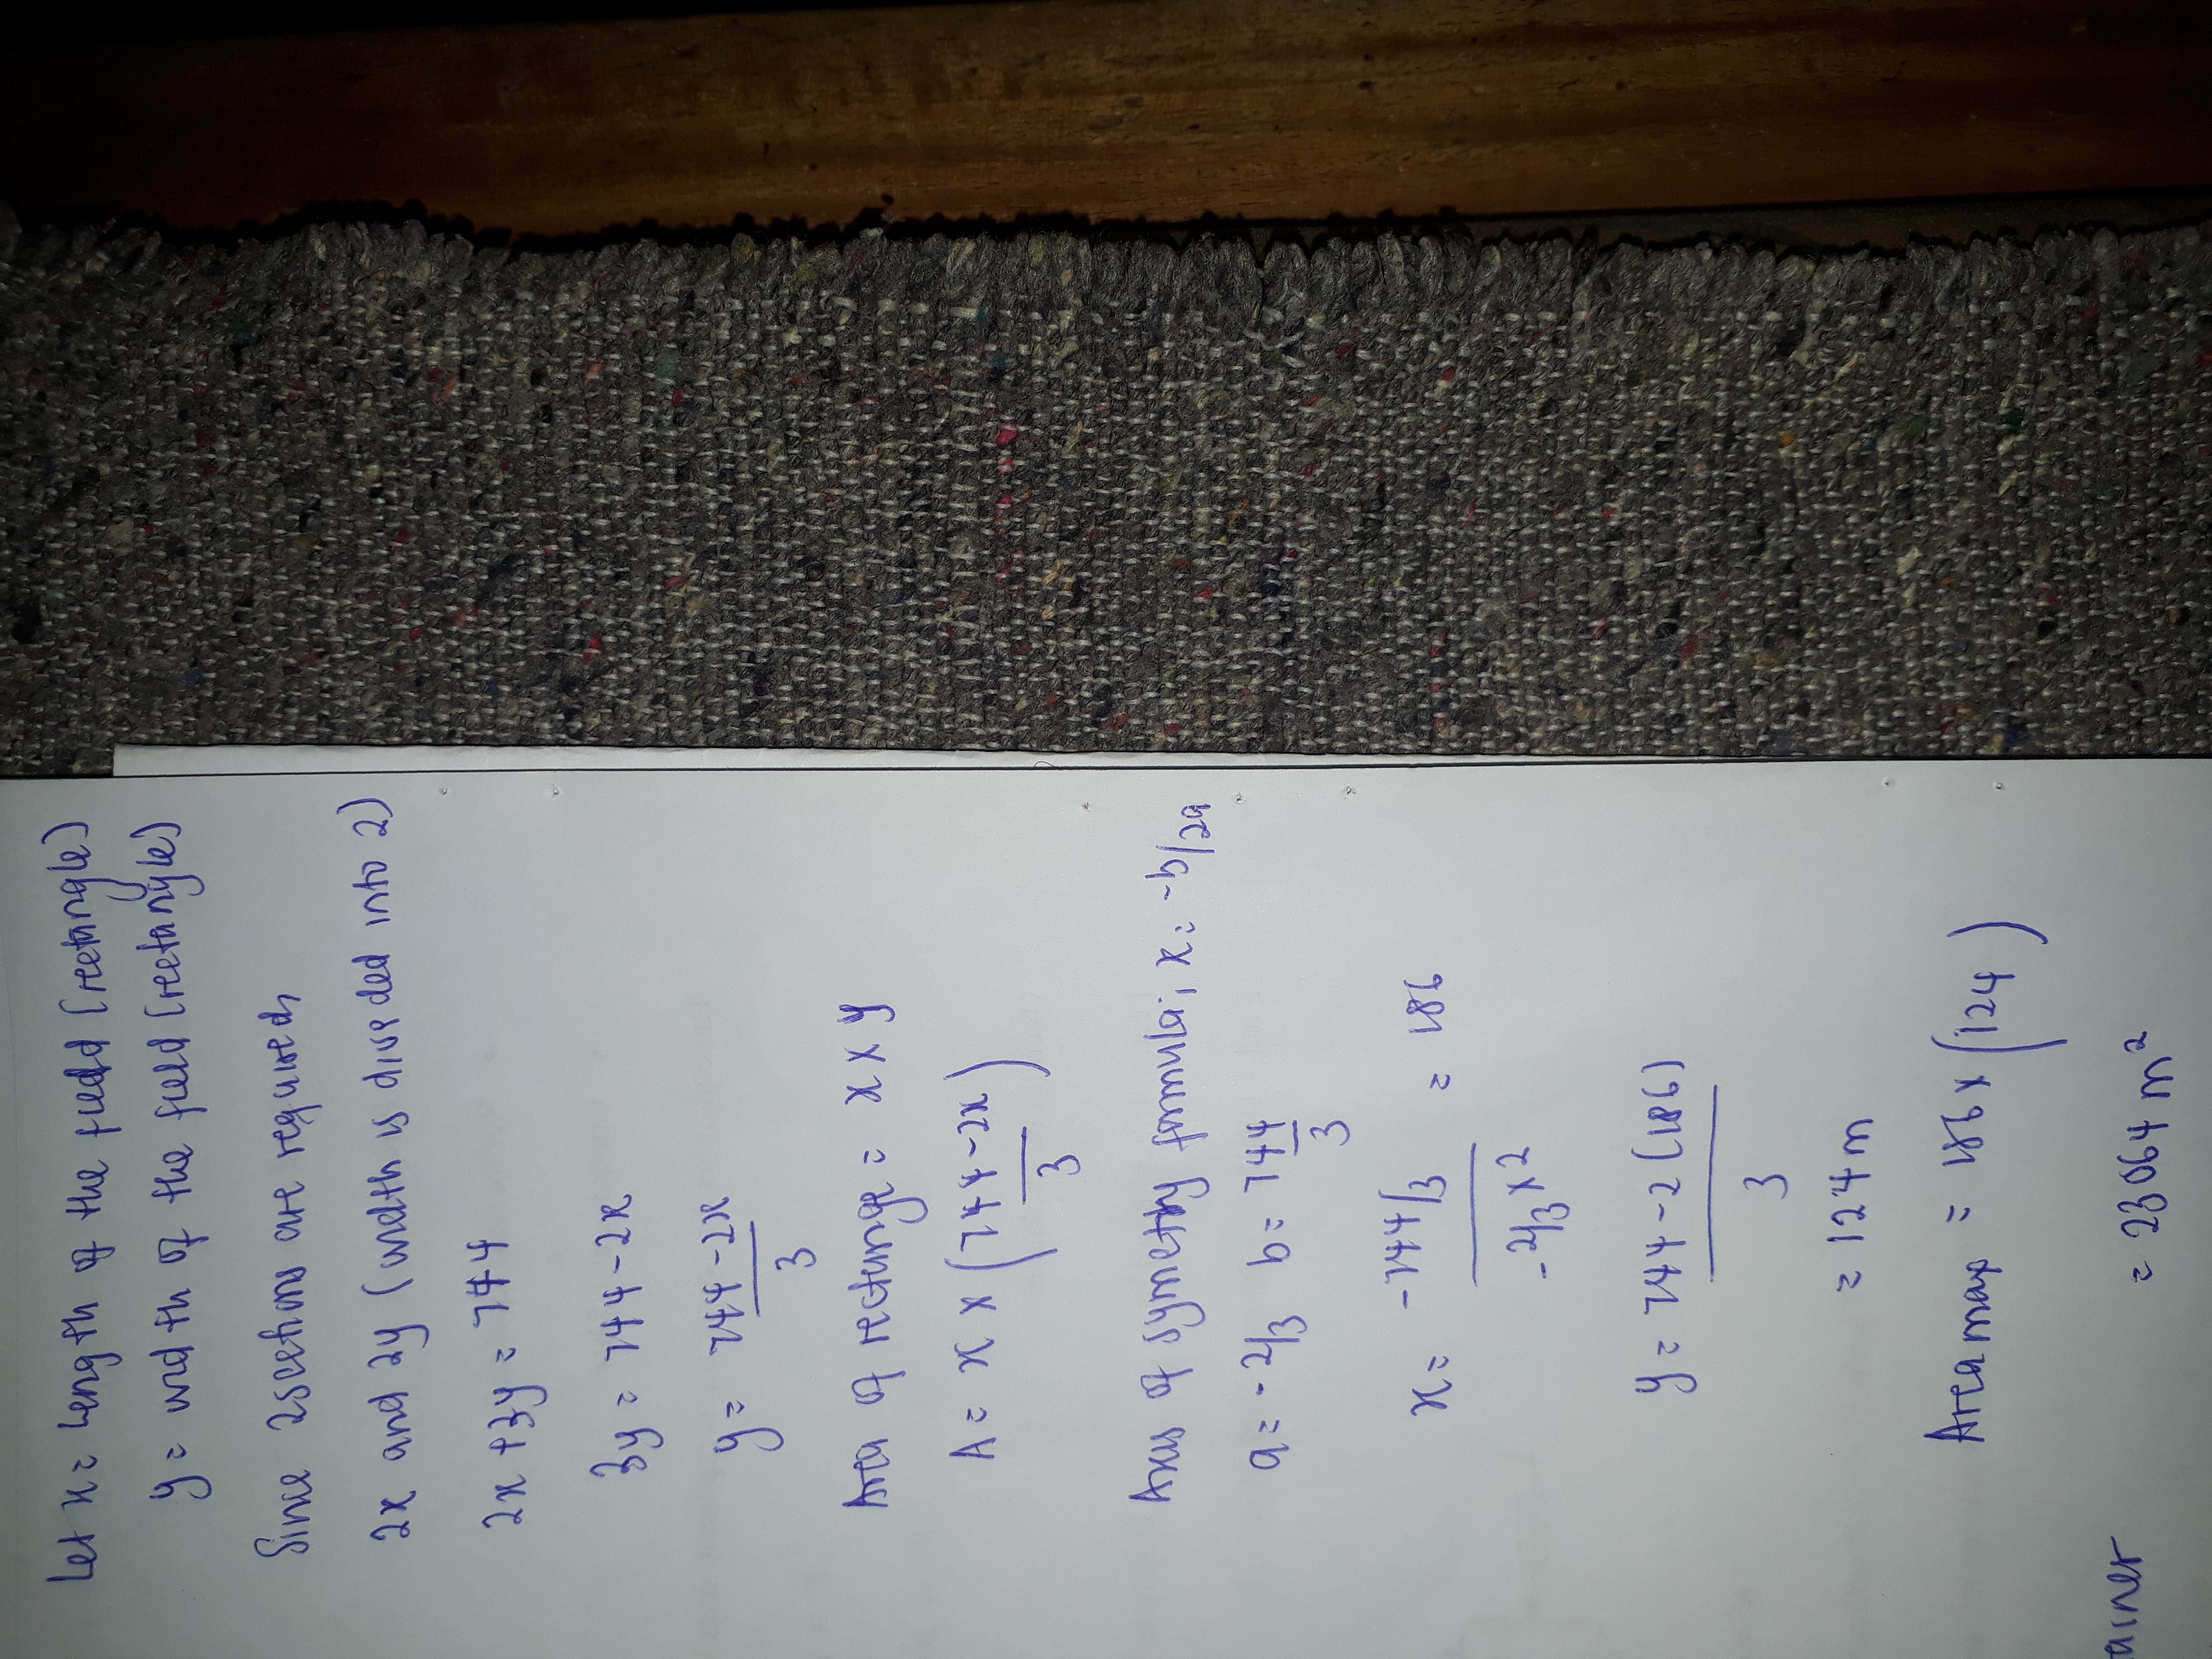 Let x = length of the field (rectangle)
y = width of the field (rectangle)
Since 2 sections are required,
2x and 2y (width is divided into 2)
2x + 3y = 744
3y = 744 - 2x
y = 744 - 2x / 3
Area of rectangle = x × y
A = x × (744 - 2x / 3)
Axis of symettry formula; x = -b/2a
a = -2/3 b = 744/3
x = -744/3 / -2/3 × 2 = 186
y = 744 - 2(186) / 3
= 124 m
Area max = 186 × (124)
= 23064 m²
ainer